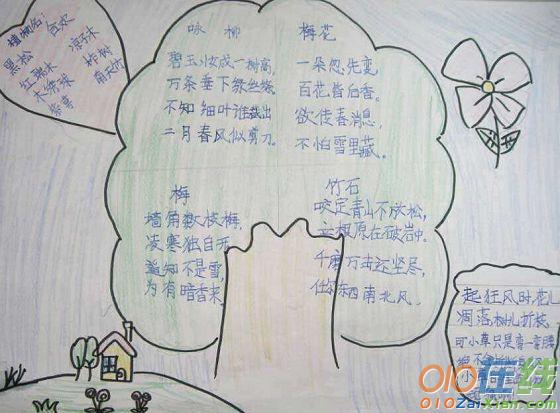 植物名:
红衣
黑松
红瑞木
木绣球
紫薇
凉子木
柞树
南天竹
咏柳
碧玉妆成一树高,
万条垂下绿丝绦,
不知细叶谁裁出
二月春风似剪刀.
梅花
一朵忽先变,
百花皆后香.
欲传春消息,
不怕雪里藏.
梅
墙角数枝梅,
凌寒独自开,
遥知不是雪,
为有暗香来.
竹石
咬定青山不放松,
立根原在破岩中.
千磨万击还坚尽,
任尔东西南北风.
起狂风时,花儿
凋落树儿折枝
可小草只是弯一弯腰
010在线
010zaixian.com